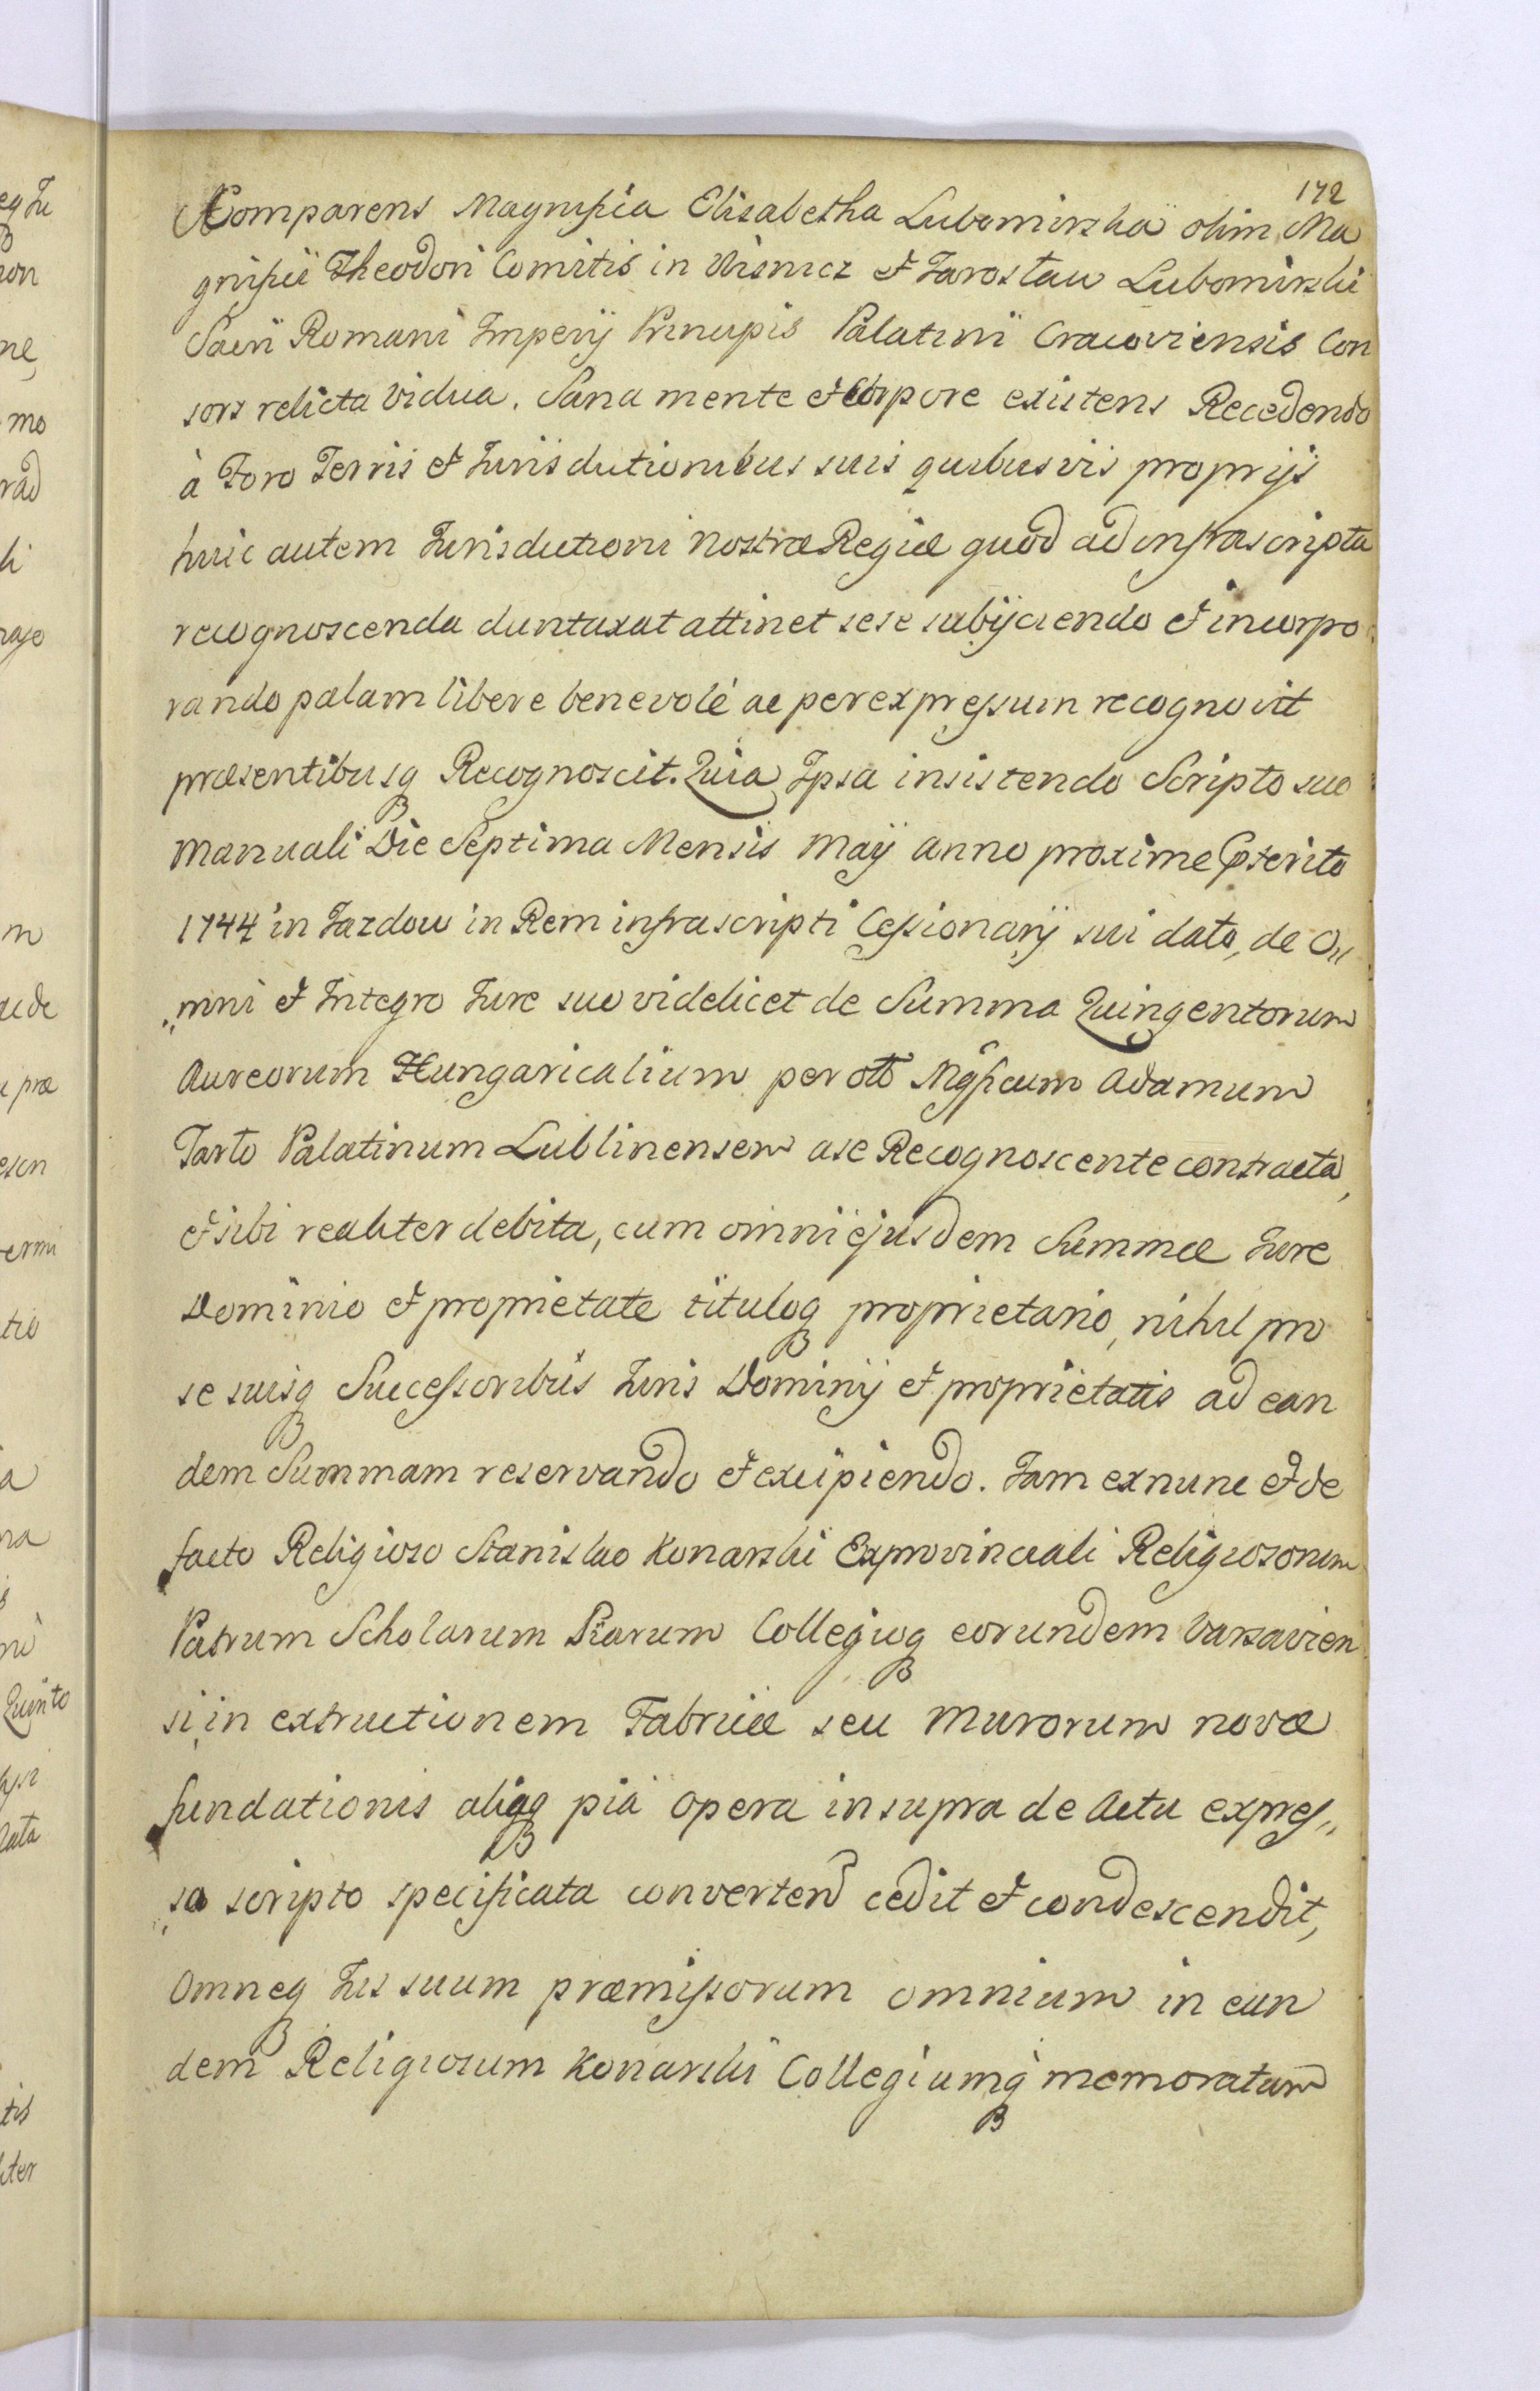 172
Comparens Magnifica Elisabetha Lubomirska olim Ma
gnifici Theodori Comitis in Wisnicz et Jaroslaw Lubomirski
Sacri Romani Imperij Principis Palatini Cracoviensis Con
sors relicta vidua. Sana mente et Corpore existens Recedendo
à Foro Terris et Jurisdictionibus suis quibusvis proprijs
huic autem Jurisdictioni nostræ Regiæ quod ad infrascripta
recognoscenda duntaxat attinet sese subijciendo et incorpo
rando palam libere benevolè ac per expressum recognovit
præsentibusq Recognoscit. Quia Ipsa insistendo Scripto suo
Manuali Die Septima Mensis Maij anno proxime pterito
1744 in Jazdow in Rem infrascripti Cessionarij sui dato, de O
mni et Integro Jure suo videlicet de Summa Quingentorum
Aureorum Hungaricalium per Mgficum Adamum
Tarło Palatinum Lublinensem a se Recognoscente contracta,
et sibi realiter debita, cum omni ejusdem Summæ Jure
Dominio et proprietate tituloq proprietario, nihil pro
se suisq Successoribus Juris Dominij et proprietatis ad ean
dem Summam reservando et excipiendo. Jam ex nunc et de
facto Religioso Stanislao Konarski Exprovinciali Religiosorum
Patrum Scholarum Piarum Collegioq eorundem Varsavien
si, in extructionem Fabricæ seu Murorum novæ
fundationis aliaq pia opera in supra de Actu expres„
„so scripto specificata convertend cedit et condescendit,
Omneq Jus suum præmissorum omnium in eun
dem Religiosum Konarski Collegiumq memoratum